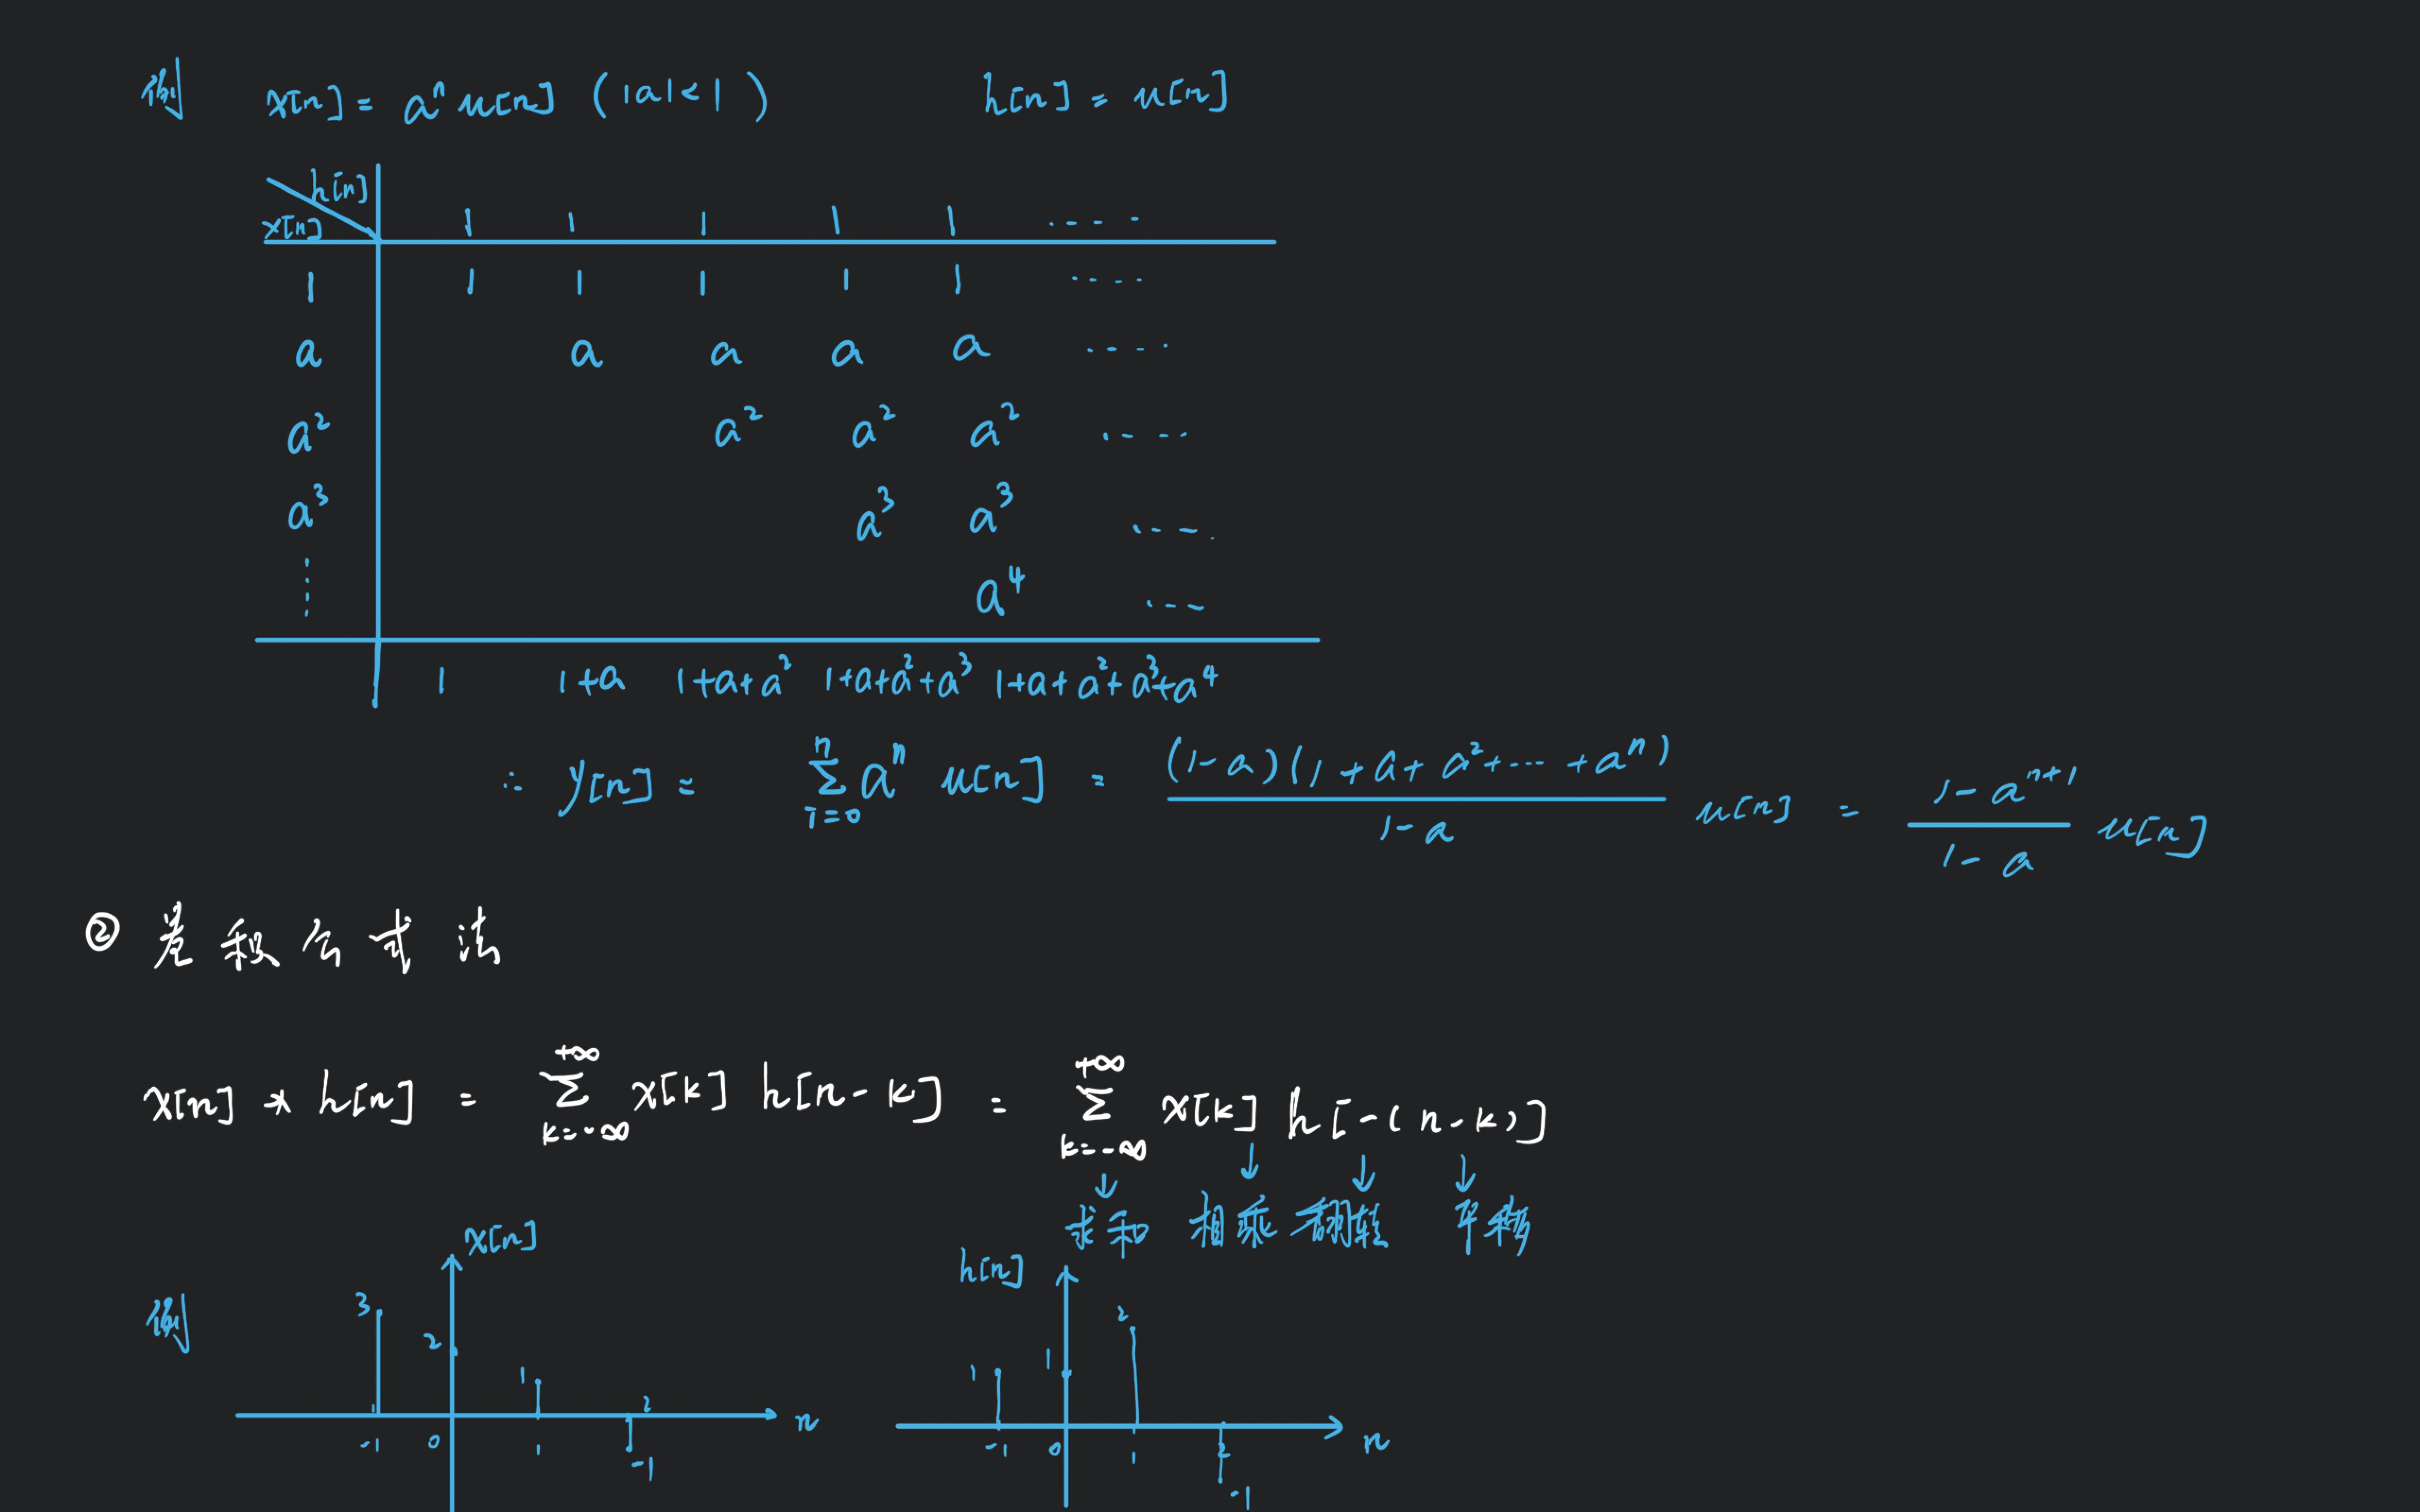 例 x[n] = aⁿu[n] (|a|<1) h[n] = u[n]
h[n]
x[n] 1 1 1 1 1 ····
1 1 1 1 1 1 ····
a a a a a ····
a² a² a² a² ····
a³ a³ a³ ····
⋮ a⁴ ···
1 1+a 1+a+a² 1+a+a²+a³ 1+a+a²+a³+a⁴
∴ y[n] = Σ_{i=0}^{n} aⁿ u[n] = (1-a)(1+a+a²+···+aⁿ)/(1-a) u[n] = (1-aⁿ⁺¹)/(1-a) u[n]
② 卷积公式法
x[n] * h[n] = Σ_{k=-∞}^{+∞} x[k] h[n-k] = Σ_{k=-∞}^{+∞} x[k] h[-(n-k)]
↓ ↓ ↓ ↓
求和 相乘 翻转 平移
例
x[n]
3
2
1
2
-1 0 1 n
-1
h[n]
2
1 1
-1 0 1 2 n
-1